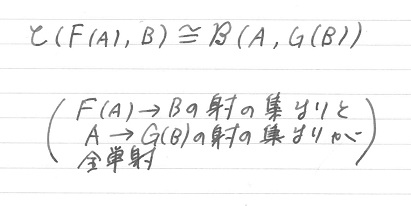 𝒞(F(A), B) ≅ ℬ(A, G(B))
(F(A)→Bの射の集まりと
A→G(B)の射の集まりが
全単射)